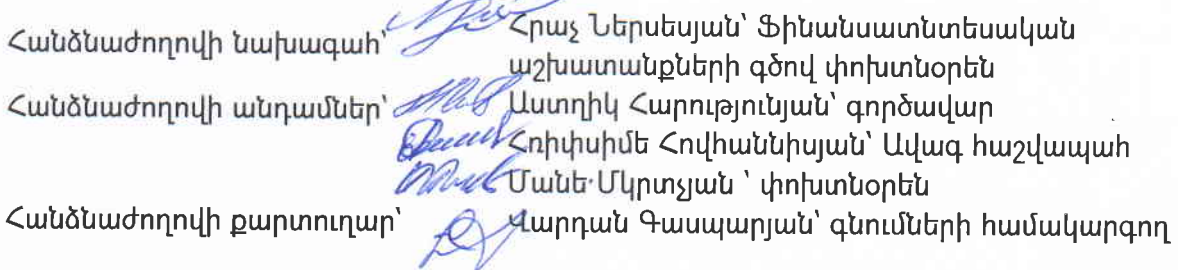 Հանձնաժողովի նախագահ՝ Հրաչ Ներսեսյան՝ Ֆինանսատնտեսական
աշխատանքների գծով փոխտնօրեն
Հանձնաժողովի անդամներ՝ Աստղիկ Հարությունյան՝ գործավար
Հռիփսիմե Հովհաննիսյան՝ Ավագ հաշվապահ
Մանե Մկրտչյան ՝ փոխտնօրեն
Հանձնաժողովի քարտուղար՝ Վարդան Գասպարյան՝ գնումների համակարգող